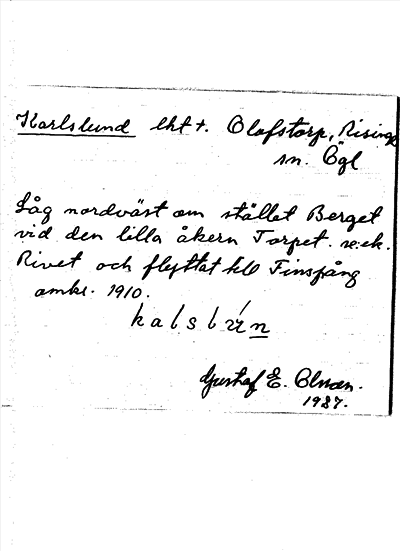 Karlslund lht +. Olofstorp, Risinge
sn. Ögl
Låg nordväst om stället Berget
vid den lilla åkern Torpet. se: ek.
Rivet och flyttat till Finspång
omkr. 1910.
Gustaf E. Olsson.
1987.